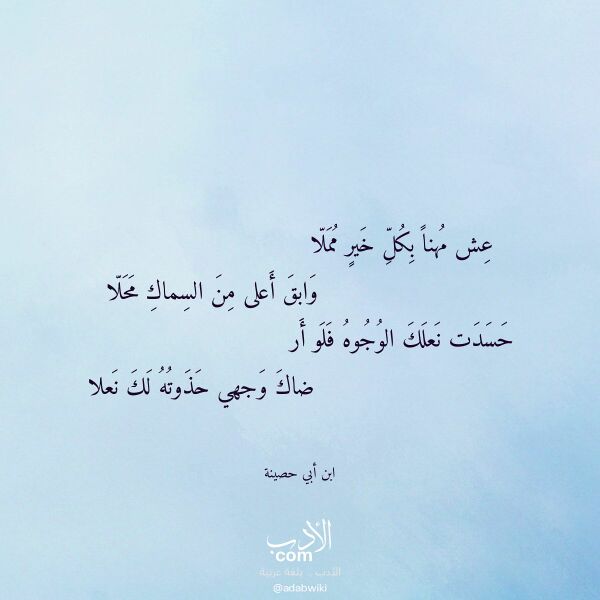 عِش مُهناً بِكُلِّ خَيرٍ مُمَلّا
وَابقَ أَعلى مِنَ السِماكِ مَحَلّا
حَسَدَت نَعلَكَ الوُجُوهُ فَلَو أَر
ضاكَ وَجهي حَذَوتُهُ لَكَ نَعلا
ابن أبي حصينة
الأدب
com
الأدب .. بلغة عربية
@adabwiki